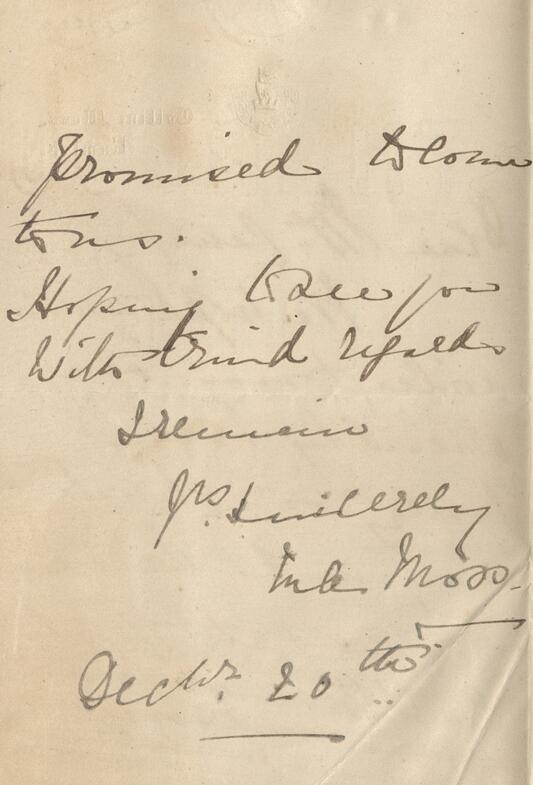 Promised to come
to us.
Hoping to see you
With kind regards
I remain
Yrs. Sincerely
Moss.
Decbr. 20th